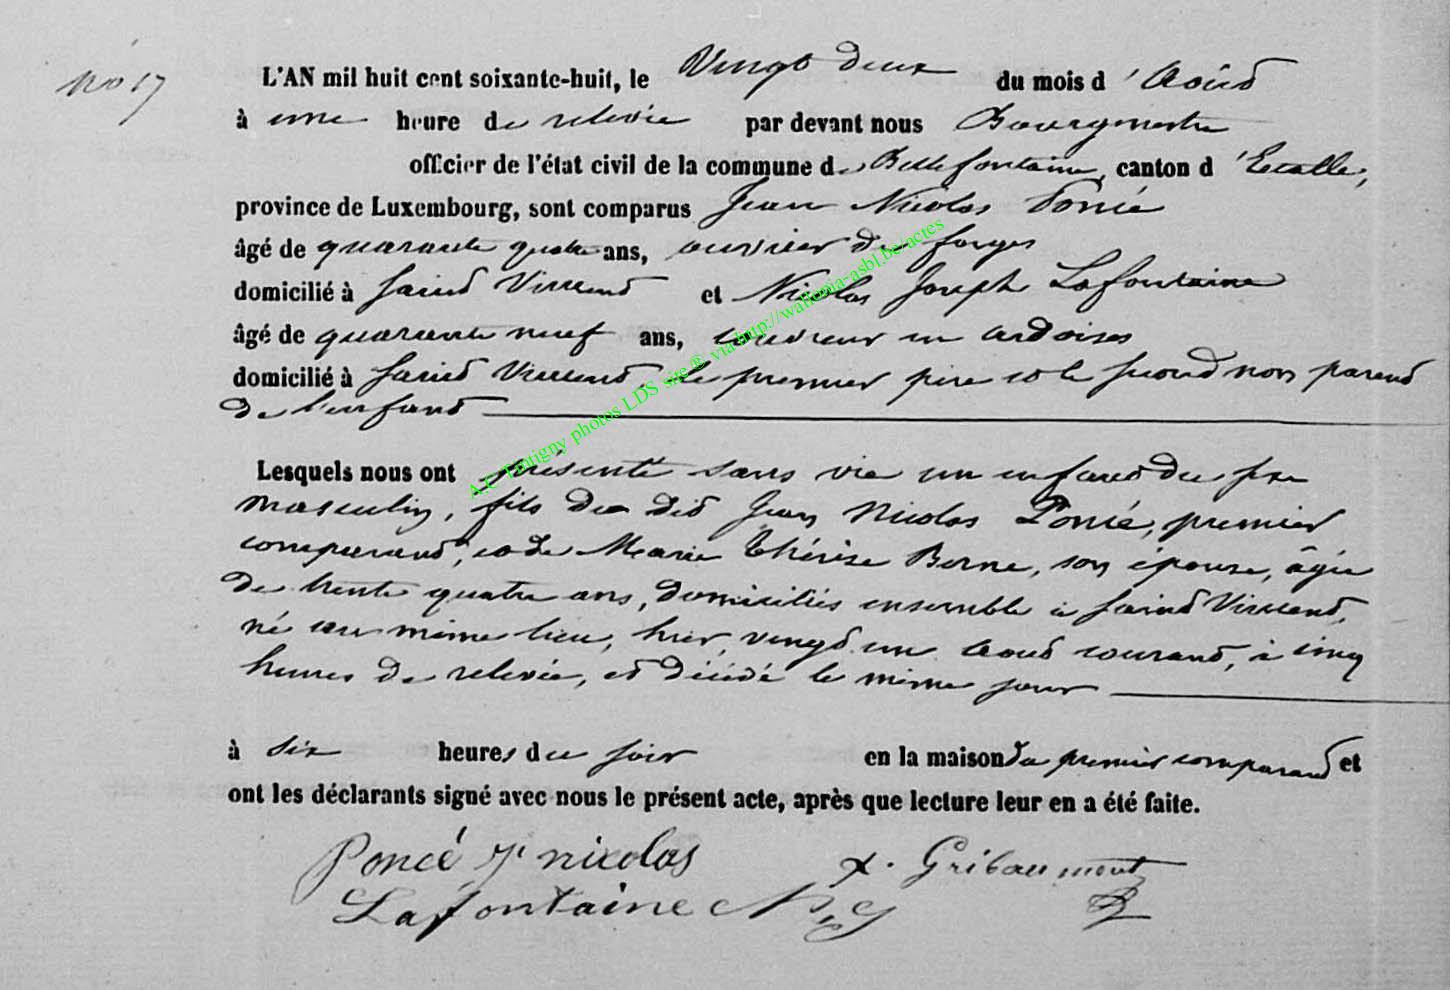 No 17
L'AN mil huit cent soixante-huit, le Vingt deux du mois d'Août
à une heure de relevée par devant nous Bourgmestre
officier de l'état civil de la commune de Bellefontaine, canton d'Etalle,
province de Luxembourg, sont comparus Jean Nicolas Poncé
âgé de quarante quatre ans, ouvrier de forges
domicilié à Saint Vincent et Nicolas Joseph Lafontaine
âgé de quarante neuf ans, couvreur en ardoises
domicilié à Saint Vincent, le premier père et le second non parent
de l'enfant
Lesquels nous ont présenté sans vie un enfant du sexe
masculin, fils du dit Jean Nicolas Poncé, premier
comparant, et de Marie Thérèse Borne, son épouse, âgée
de trente quatre ans, domiciliés ensemble à Saint Vincent,
né au même lieu, hier, vingt un Août courant, à cinq
heures de relevée, et décédé le même jour
à six heures du soir en la maison du premier comparant et
ont les déclarants signé avec nous le présent acte, après que lecture leur en a été faite.
Poncé J nicolas
Gribaumont
Lafontaine
A.E Tintigny photos LDS site ® via http://wallonia-asbl.be/actes